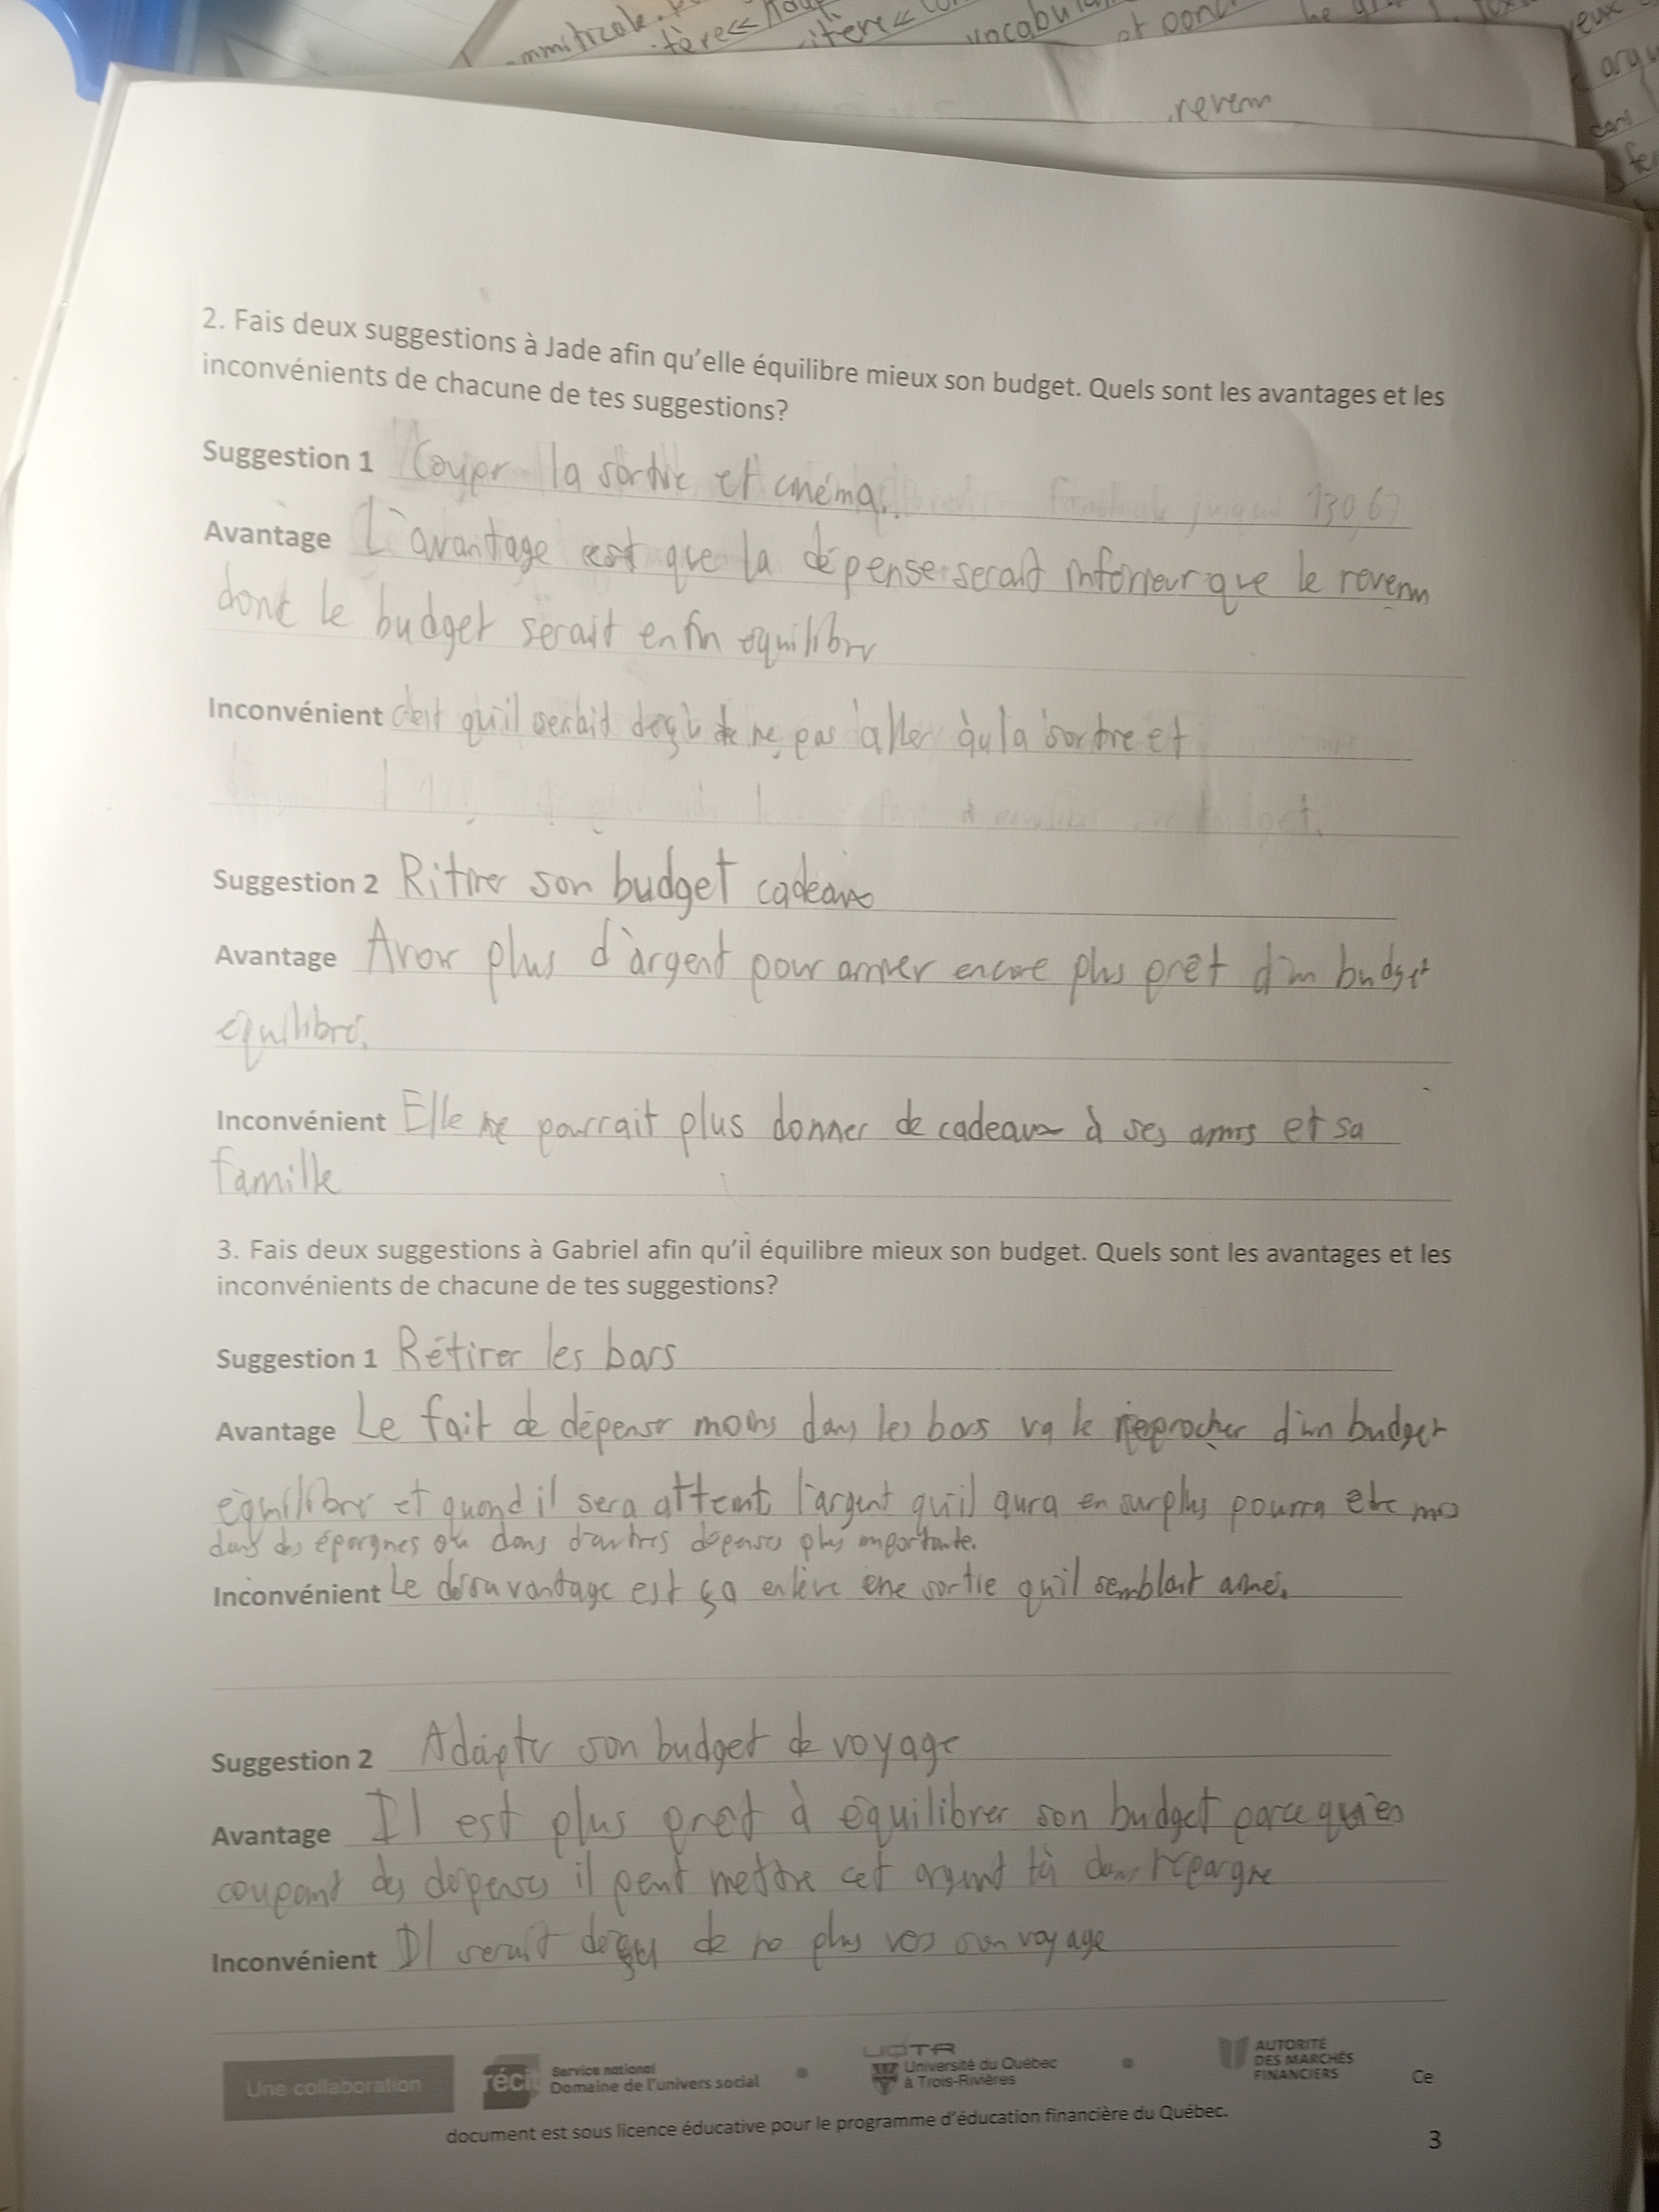 revenu
2. Fais deux suggestions à Jade afin qu'elle équilibre mieux son budget. Quels sont les avantages et les
inconvénients de chacune de tes suggestions?
Suggestion 1 Couper la sortie et cinéma.
Avantage L'avantage est que la dépense serait inférieur que le revenu
donc le budget serait enfin équilibré
Inconvénient c'est qu'il serait déçu de ne pas aller à la sortie et
Suggestion 2 Ritirer son budget cadeaux
Avantage Avoir plus d'argent pour arriver encore plus prêt d'un budget
équilibré.
Inconvénient Elle ne pourrait plus donner de cadeaux à ses amis et sa
famille
3. Fais deux suggestions à Gabriel afin qu'il équilibre mieux son budget. Quels sont les avantages et les
inconvénients de chacune de tes suggestions?
Suggestion 1 Rétirer les bars
Avantage Le fait de dépenser moins dans les bars va le reprocher d'un budget
équilibré et quand il sera attent l'argent qu'il aura en surplus pourra etre mis
dans des épargnes ou dans d'autres dépenses plus importante.
Inconvénient Le désavantage est ça enlève une sortie qu'il semblait aimé.
Suggestion 2 Adapter son budget de voyage
Avantage Il est plus prêt à équilibrer son budget parce qu'en
coupant des dépenses il peut mettre cet argent là dans l'épargne
Inconvénient Il serait déçu de ne plus son voyage
Une collaboration
récit Service national
Domaine de l'univers social
UQTR
Université du Québec
à Trois-Rivières
AUTORITÉ
DES MARCHÉS
FINANCIERS
Ce
document est sous licence éducative pour le programme d'éducation financière du Québec.
3